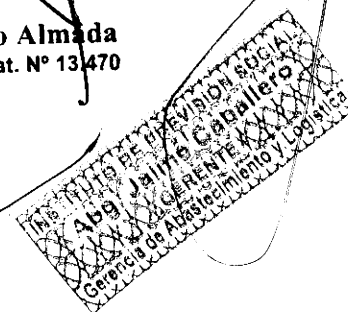 o Almada
at. Nº 13.470
INSTITUTO DE PREVISIÓN SOCIAL
Abg. Jaime Caballero
GERENTE
Gerencia de Abastecimiento y Logística